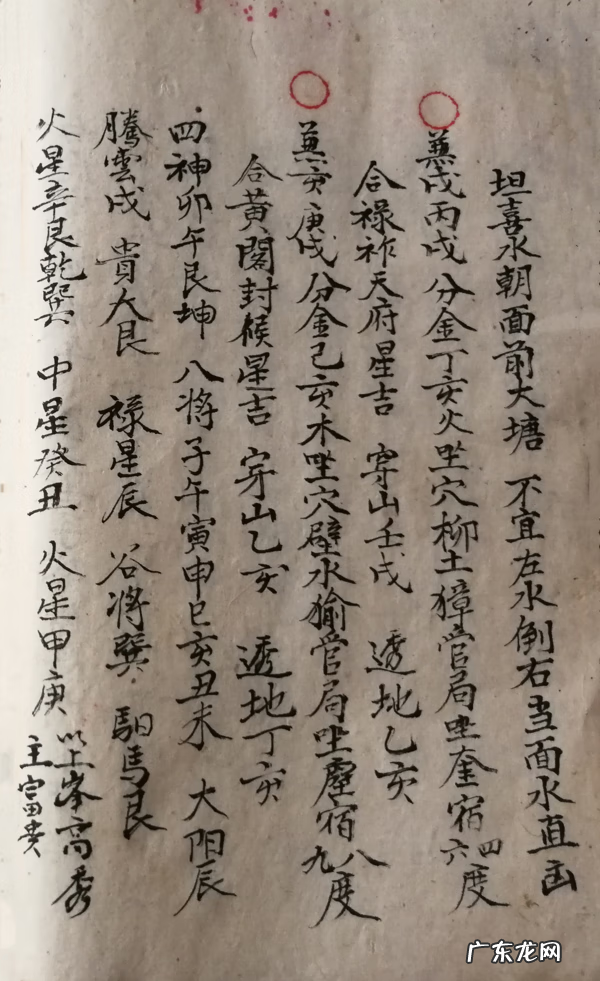 坦喜水朝面前大塘 不宜左水倒右当面水直出
兼戌丙戌分金丁亥火坐穴柳土獐管局坐奎宿四六度
合祿祚天府星吉 穿山壬戌 透地乙亥
兼亥庚戌分金己亥木坐穴壁水貐管局坐宿八九度
合黃閣封候星吉 穿山乙亥 透地丁亥
四神卯午艮坤 八将子午寅申巳亥丑未 大阳辰
騰雲戌 貴人艮 祿星辰 谷将巽 馹馬艮
火星辛艮乾巽 中星癸丑 火星甲庚 以上峯高秀主富贵
广东龙网